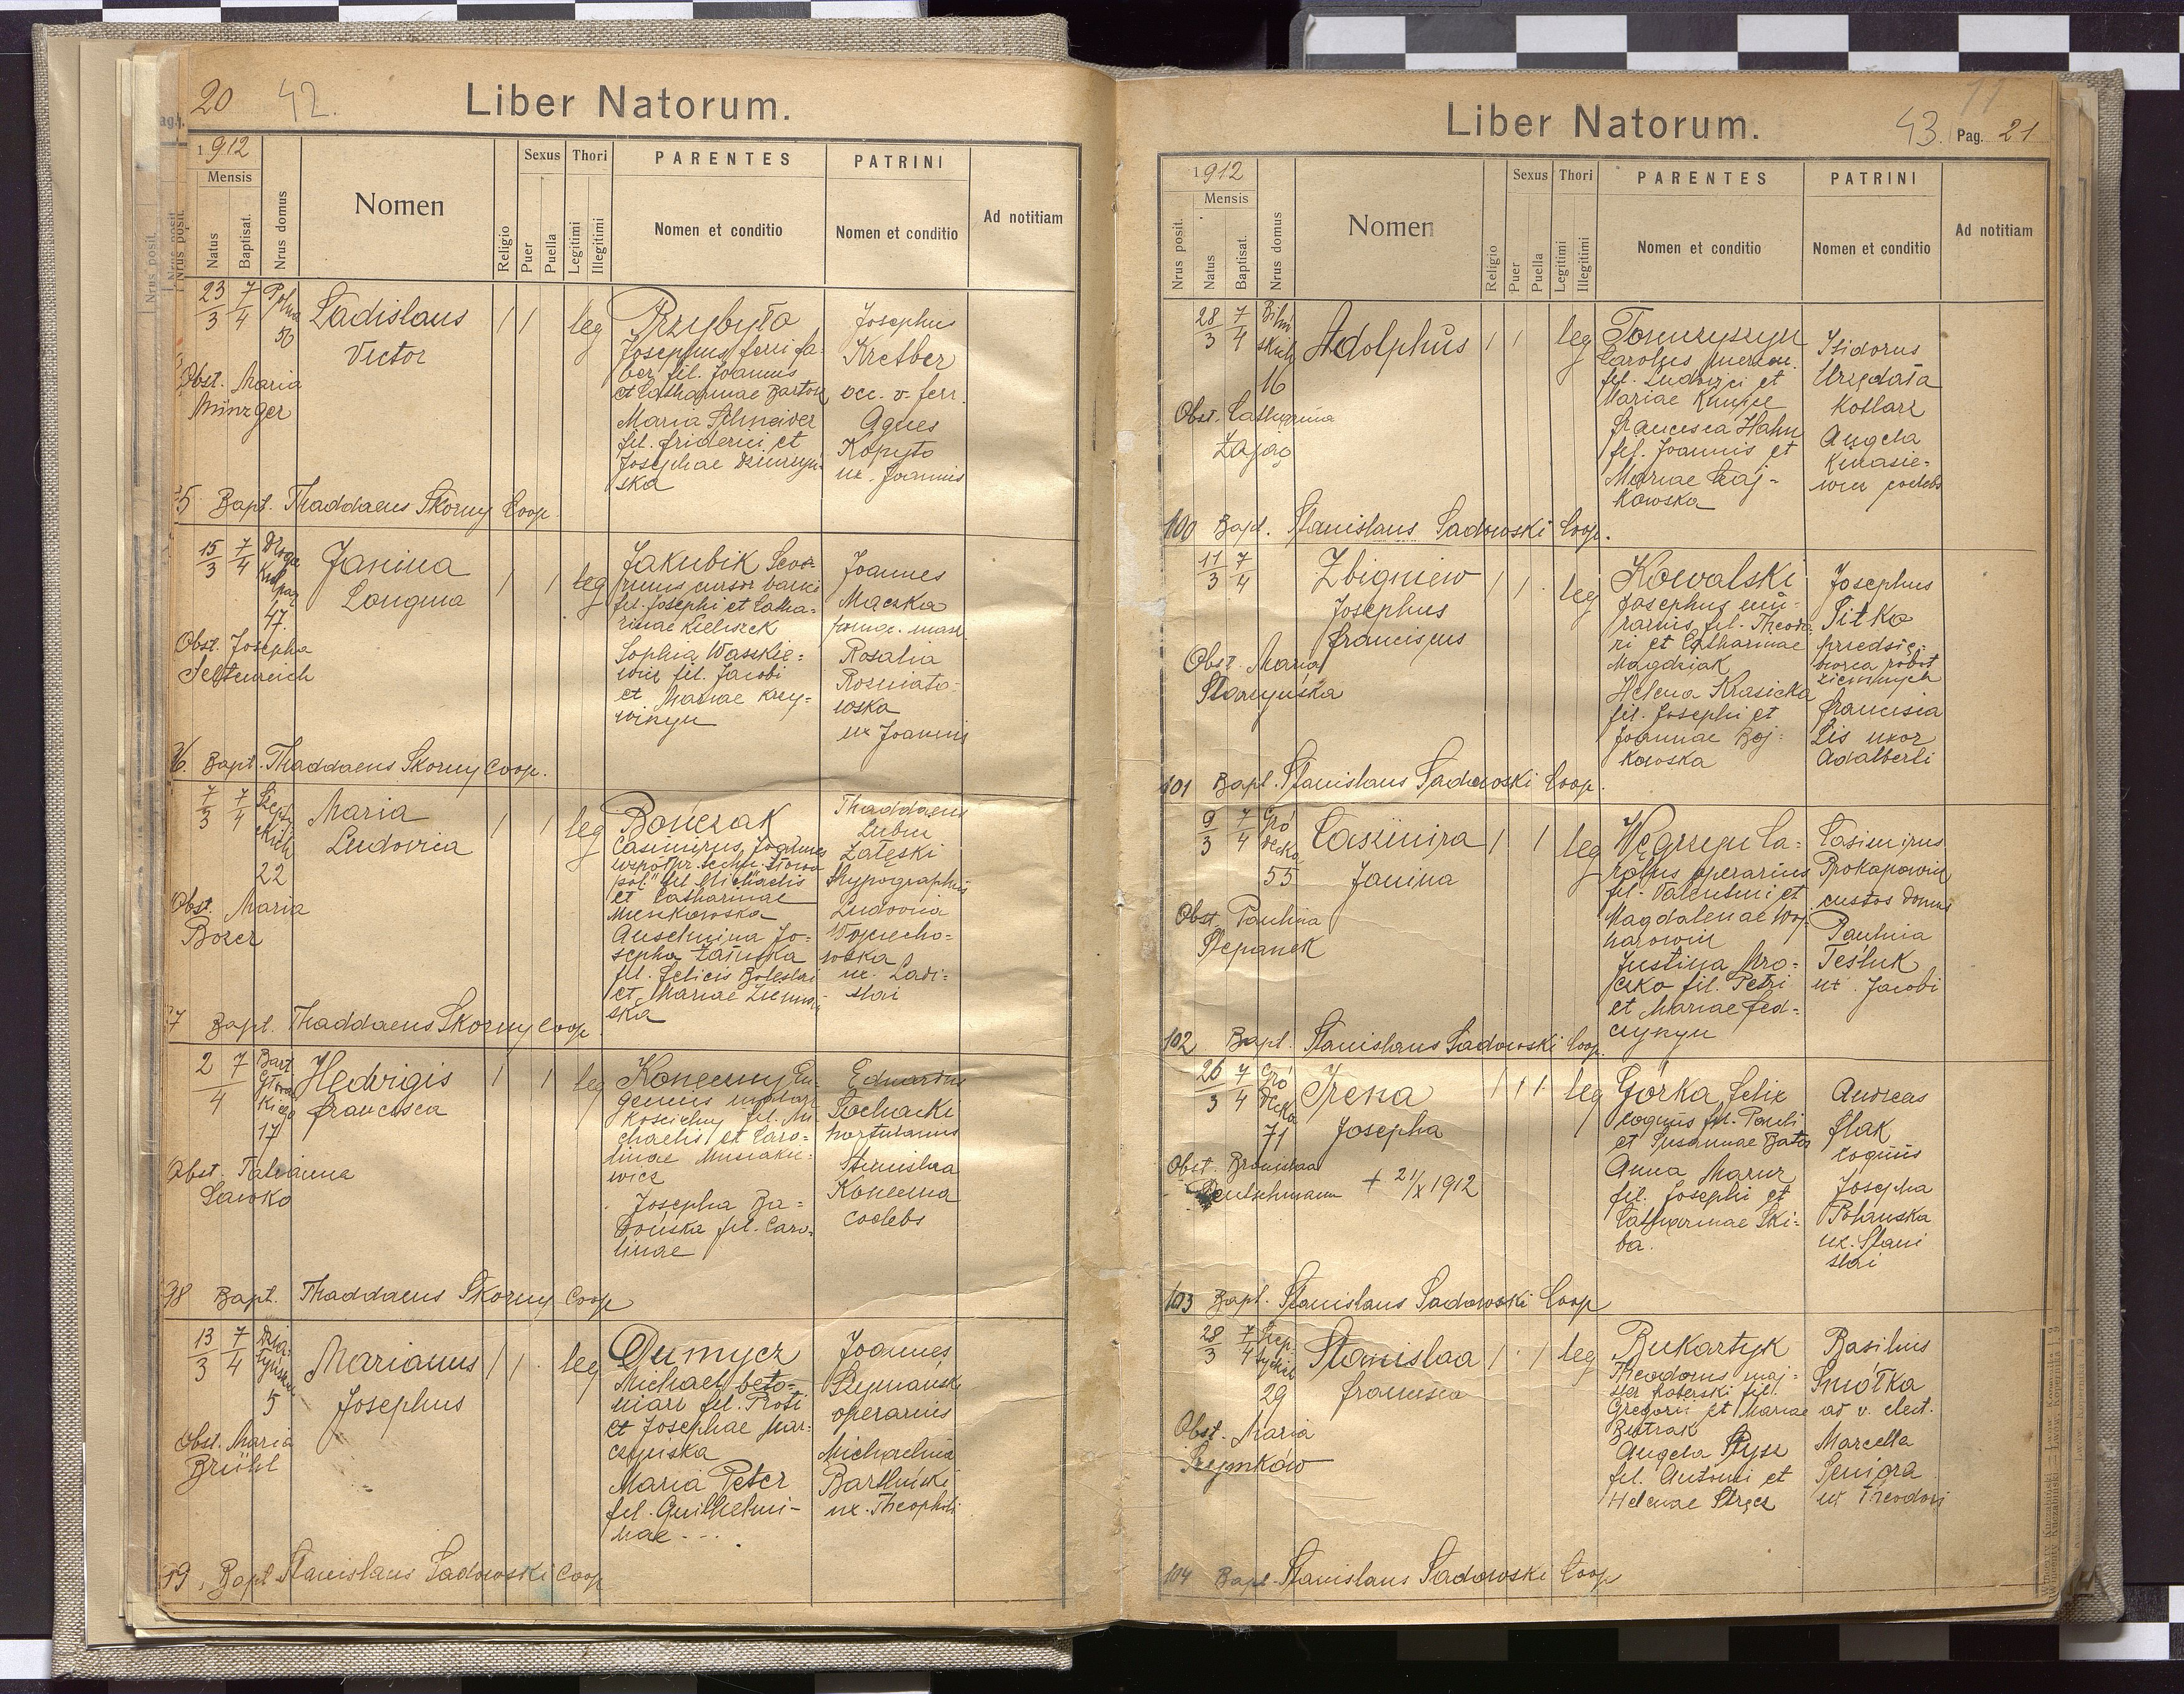 20 42.
Liber Natorum.
1912
Mensis
Natus
Baptisat.
Nrus domus
Nomen
Religio
Sexus
Puer
Puella
Thori
Legitimi
Illegitimi
PARENTES
Nomen et conditio
PATRINI
Nomen et conditio
Ad notitiam
23/3 7/4 50
Ladislaus
Victor
1 1 leg
Przybyło
Josephus ferri fa-
ber fil. Joannis
et Catharinae Bartoń
Maria Schneider
fil. Friderici et
Josephae
ska
Josephus
Kretber
occ. v. ferr.
Agnes
Kopyto
ux. Joannis
Obst. Maria
Münzger
Bapt. Thaddaeus Skorny Coop.
15/3 7/4 47.
Janina
Longina
1 1 leg
Jakubik Seve-
rinus cursor banci
fil. Josephi et Catha-
rinae Kieliszek
Sophia Waśkie-
wicz fil. Jacobi
et Mariae Kry-
winyu
Joannes
Mączka
Rosalia
Rozniato-
wska
ux Joannis
Obst. Josepha
Seltenreich
96. Bapt. Thaddaeus Skorny Coop.
7/3 7/4 22
Maria
Ludovica
1 1 leg
Bończak
Casimirus Joannes
pol." fil. Michaelis
et Catharinae
Mienkowska
Anselmina Jo-
sepha Załuska
fil. Felicis Boleslai
et Mariae
ska
Thaddaeus
Lubin
Załęski
typographus
Ludovica
Wojciecho-
wska
ux. Ladi-
slai
Obst. Maria
Bozer
97 Bapt. Thaddaeus Skorny Coop
2/4 7 17
Hedvigis
Francisca
1 1 leg
Konieczny Eu-
genius
kościelny fil. Mi-
chaelis et Caro-
linae
wicz
Josepha Ba-
dońska fil. Caro-
linae
Eduardus
Sochacki
hortulanus
Stanislaa
Konieczna
coelebs
Obst. Tatianna
Sawko
98 Bapt. Thaddaeus Skorny Coop
13/3 7/4 5
Marianus
Josephus
1 1 leg
Dumycz
Michael beto-
niarz fil. Proti
et Josephae Mar-
czyńska
Maria Peter
fil. Guilhelmi-
nae - - .
Joannes
Szymański
operarius
Michaelina
Bartłuiski
ux. Theophili
Obst. Maria
Brühl
99. Bapt Stanislaus Sadowski Coop
Liber Natorum.
43. Pag. 21
1912
Mensis
Nrus posit.
Natus
Baptisat.
Nrus domus
Nomen
Religio
Sexus
Puer
Puella
Thori
Legitimi
Illegitimi
PARENTES
Nomen et conditio
PATRINI
Nomen et conditio
Ad notitiam
28/3 7/4 16
Adolphus
1 1 leg
Tomczyszyn
Carolus
fil. Ludovici et
Mariae
Francisca Hahn
fil. Joannis et
Mariae Czaj-
kowska
Isidorus
Urzędała
kotlarz
Angela
Kinasie-
wicz coelebs
Obst. Catharina
Zając
100 Bapt. Stanislaus Sadowski Coop.
11/3 7/4
Zbigniew
Josephus
Franciscus
1 1 leg
Kowalski
Josephus mu-
rarius fil. Theodo-
ri et Catharinae
Magdziak
Helena Krasicka
fil. Josephi et
Joannae Boj-
kowska
Josephus
Sitko
przedsię-
biorca robot
ziemnych
Francisca
Lis uxor
Adalberti
Obst. Maria
Skarzyńska
101 Bapt. Stanislaus Sadowski Coop.
9/3 7/4 Gró
decka
55
Casimira
Janina
1 1 leg
Węgrzyn Ca-
rolus operarius
fil. Valentini et
Magdalenae Woj-
narowicz
Justina Mro-
czko fil. Petri
et Mariae Fed-
czynyn
Casimirus
Prokopowicz
custos domus
Paulina
Tesluk
ux. Jacobi
Obst. Paulina
Stepanek
102 Bapt. Stanislaus Sadowski Coop.
26/3 7/4 Gró
decka
71
Irena
Josepha
1 1 1 leg
Górka Felix
coquus fil. Pauli
et Susannae Bator
Anna Mazur
fil. Josephi et
Catharinae Ski-
ba.
Andreas
Flak
coquus
Josepha
Polanska
ux. Stani
slai
Obst. Bronislaa
Deutschmann + 21/X 1912
103 Bapt. Stanislaus Sadowski Coop
28/3 7/4 29
Stanislaa
Francisca
1 1 leg
Bukartyk
Theodorus maj-
ster
Gregorii et Mariae
Butrak
Angela Pysz
fil. Antonii et
Helenae Stręcz
Basilius
Smółka
ad v. elect.
Marcella
Seniora
ux Theodori
Obst. Maria
Szymków
104 Bapt. Stanislaus Sadowski Coop